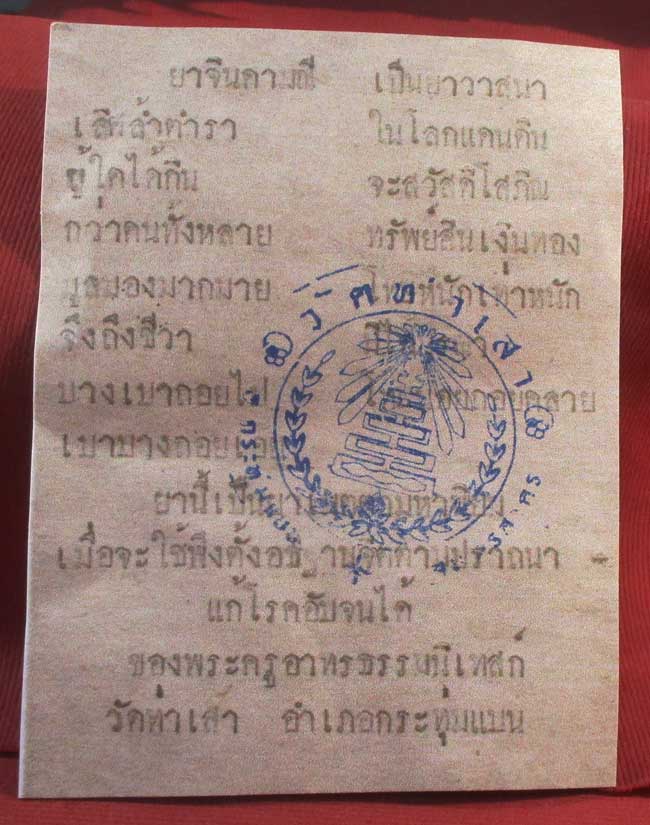 ยาจินดามณี เป็นยาวาสนา
เลิศล้ำตำรา ในโลกแดนดิน
ผู้ใดได้กิน จะสวัสดิโสภิณ
กว่าคนทั้งหลาย ทรัพย์สินเงินทอง
มูลมองมากมาย โทษหนักเท่าหนัก
จึ่งถึงชีวา
บางเบาถอยไป
เบาบางถอย
ยานี้เป็นยา
เมื่อจะใช้พึงตั้งอธิ านจิตตามปราถนา
แก้โรคอับจนได้
ของพระครูอาทรธรรมนิเทสก์
วัดท่าเสา อำเภอกระทุ่มแบน
วัดท่าเสา